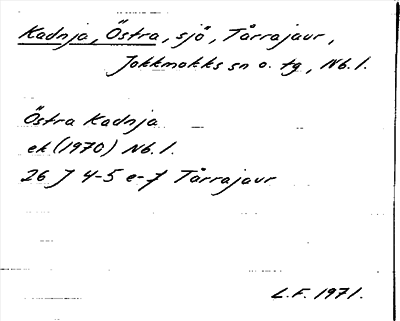 Kadnja, Östra, sjö, Tårrajaur,
Jokkmokks sn o. tg, Nb. l.
Östra Kadnja
ek (1970) Nb. l.
26 J 4-5 e-f Tårrajaur
L.F. 1971.